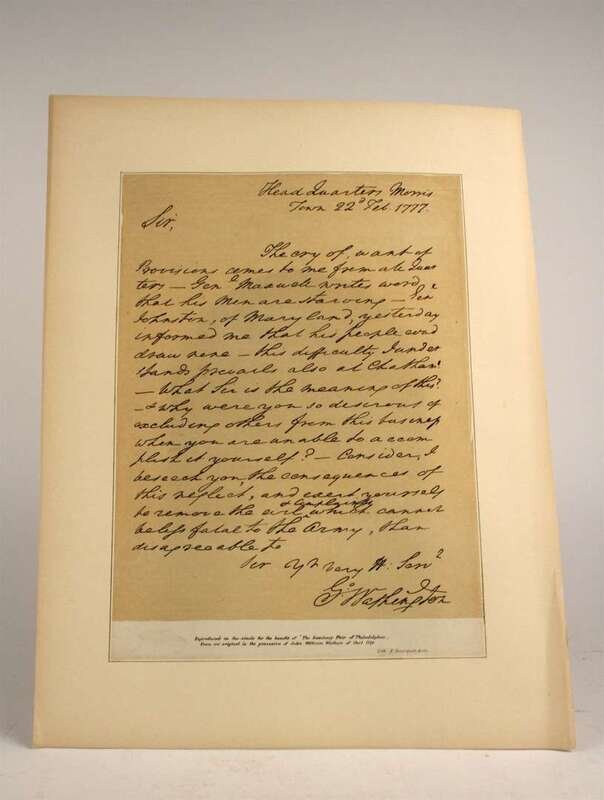 Head Quarters Morris
Town 22d Feb. 1777.
Sir,
The cry of want of
Provisions comes to me from all Quar
ters — Genl Maxwell writes word
that his Men are starving — Genl
Johnston, of Maryland, yesterday
informed me that his people coud
draw none — this difficulty I under
stand prevails also at Chatham!
— What Sir is the meaning of this?
— & why were you so desirous of
excluding others from this business
when you are unable to accom
plish it yourself? — Consider, I
beseech you, the consequences of
this neglect, and exert yourself
to remove the evil
which cannot
be less fatal to the Army, than
disagreeable to
Sir Yr very H: Servt
Go Washington
Reproduced in fac-simile for the benefit of "The Sanitary Fair of Philadelphia,"
From an original in the possession of John William Wallace of that City